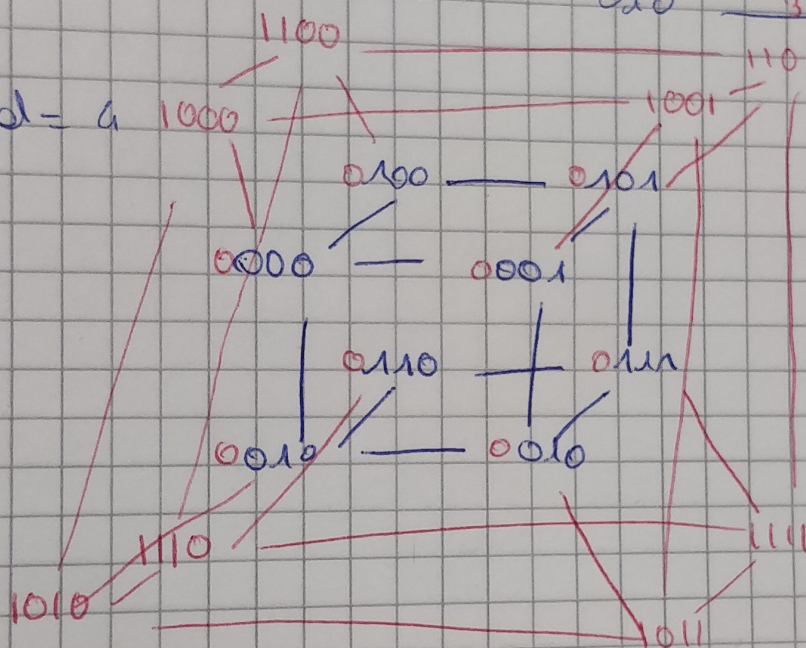 1100
110
d = 4 1000 1001
0100 0101
0000 0001
0110 0111
0010 0010
1110 1111
1010 1011